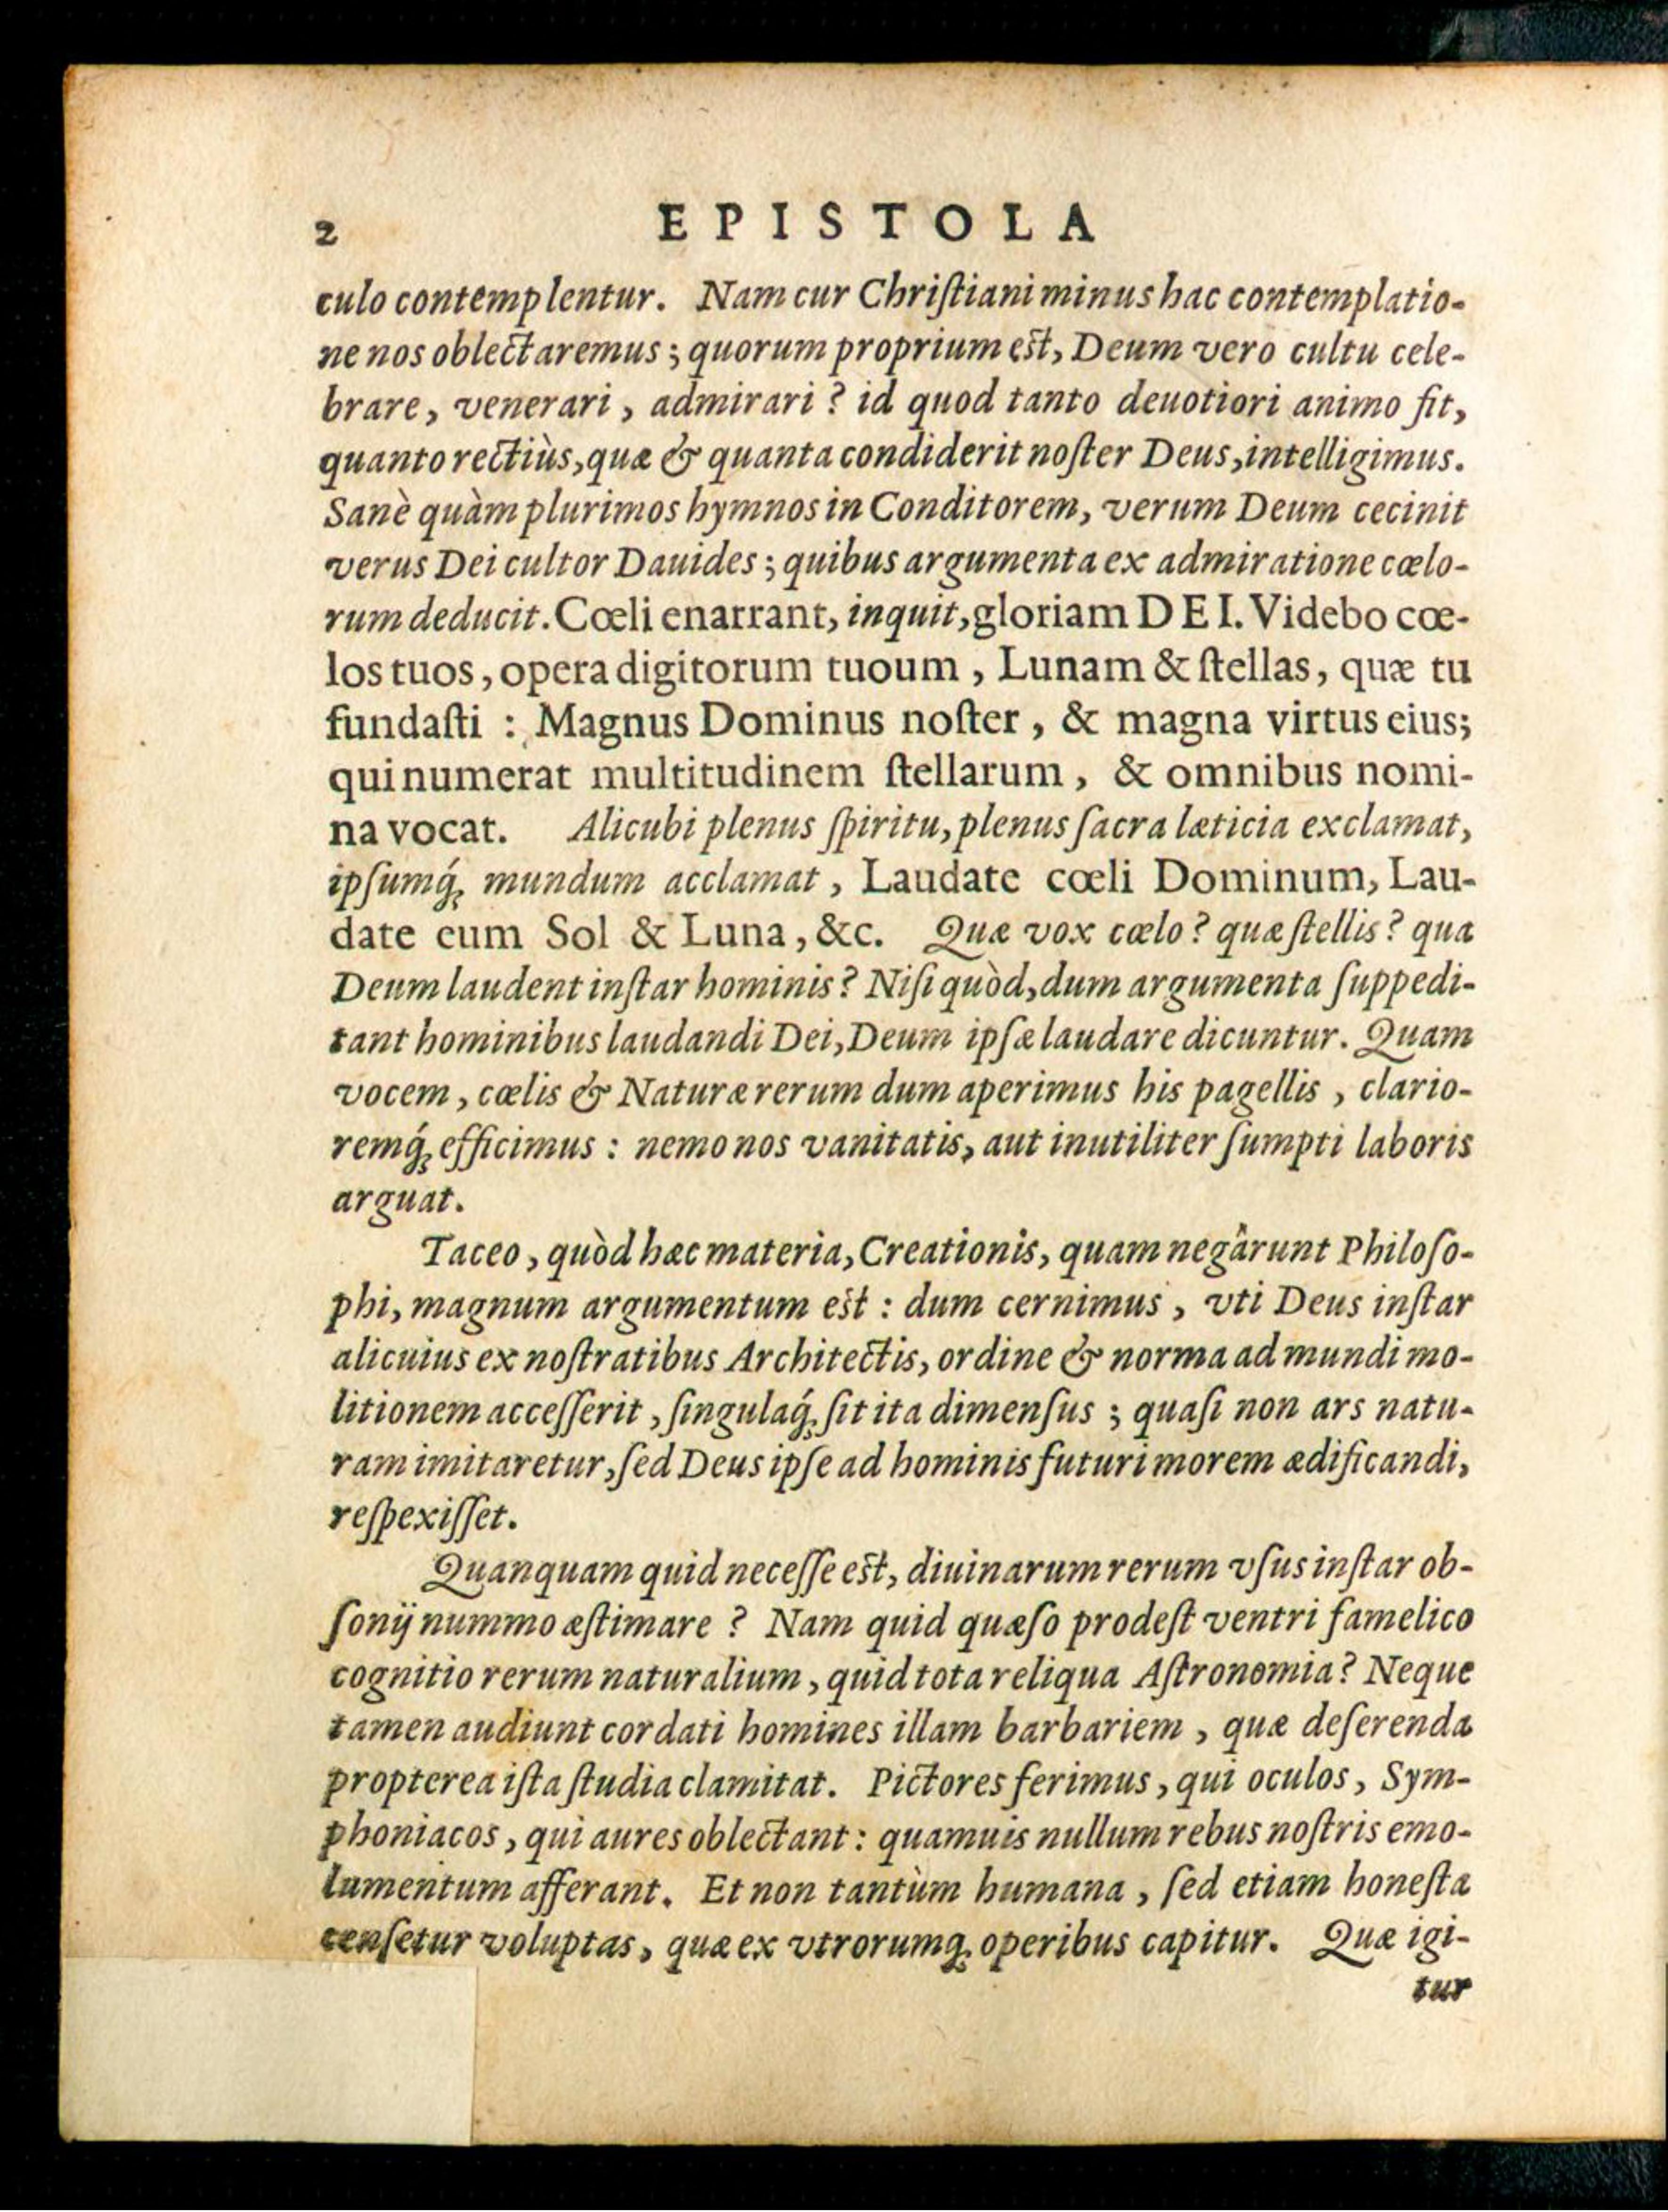 2 EPISTOLA
culo contemplentur. Nam cur Chriſtiani minus hac contemplatio-
ne nos oblectaremus; quorum proprium est, Deum vero cultu cele-
brare, venerari, admirari? id quod tanto deuotiori animo fit,
quanto rectiùs, quæ & quanta condiderit noſter Deus, intelligimus.
Sanè quàm plurimos hymnos in Conditorem, verum Deum cecinit
verus Dei cultor Dauides; quibus argumenta ex admiratione cœlo-
rum deducit. Cœli enarrant, inquit, gloriam DEI. Videbo cœ-
los tuos, opera digitorum tuoum, Lunam & ſtellas, quæ tu
fundaſti: Magnus Dominus noſter, & magna virtus eius;
qui numerat multitudinem ſtellarum, & omnibus nomi-
na vocat. Alicubi plenus ſpiritu, plenus ſacra læticia exclamat,
ipſumq́; mundum acclamat, Laudate cœli Dominum, Lau-
date eum Sol & Luna, &c. Quæ vox cœlo? quæ ſtellis? qua
Deum laudent inſtar hominis? Niſi quòd, dum argumenta ſuppedi-
tant hominibus laudandi Dei, Deum ipſæ laudare dicuntur. Quam
vocem, cœlis & Naturæ rerum dum aperimus his pagellis, clario-
remq́; efficimus: nemo nos vanitatis, aut inutiliter ſumpti laboris
arguat.
Taceo, quòd hæc materia, Creationis, quam negârunt Philoſo-
phi, magnum argumentum est: dum cernimus, vti Deus inſtar
alicuius ex noſtratibus Architectis, ordine & norma ad mundi mo-
litionem acceſſerit, ſingulaq́; ſit ita dimenſus; quaſi non ars natu-
ram imitaretur, ſed Deus ipſe ad hominis futuri morem ædificandi,
reſpexiſſet.
Quanquam quid neceſſe est, diuinarum rerum vſus inſtar ob-
ſonij nummo æſtimare? Nam quid quæſo prodeſt ventri famelico
cognitio rerum naturalium, quid tota reliqua Aſtronomia? Neque
tamen audiunt cordati homines illam barbariem, quæ deſerenda
propterea iſta ſtudia clamitat. Pictores ferimus, qui oculos, Sym-
phoniacos, qui aures oblectant: quamuis nullum rebus noſtris emo-
lumentum afferant. Et non tantùm humana, ſed etiam honeſta
cenſetur voluptas, quæ ex vtrorumq; operibus capitur. Quæ igi-
tur